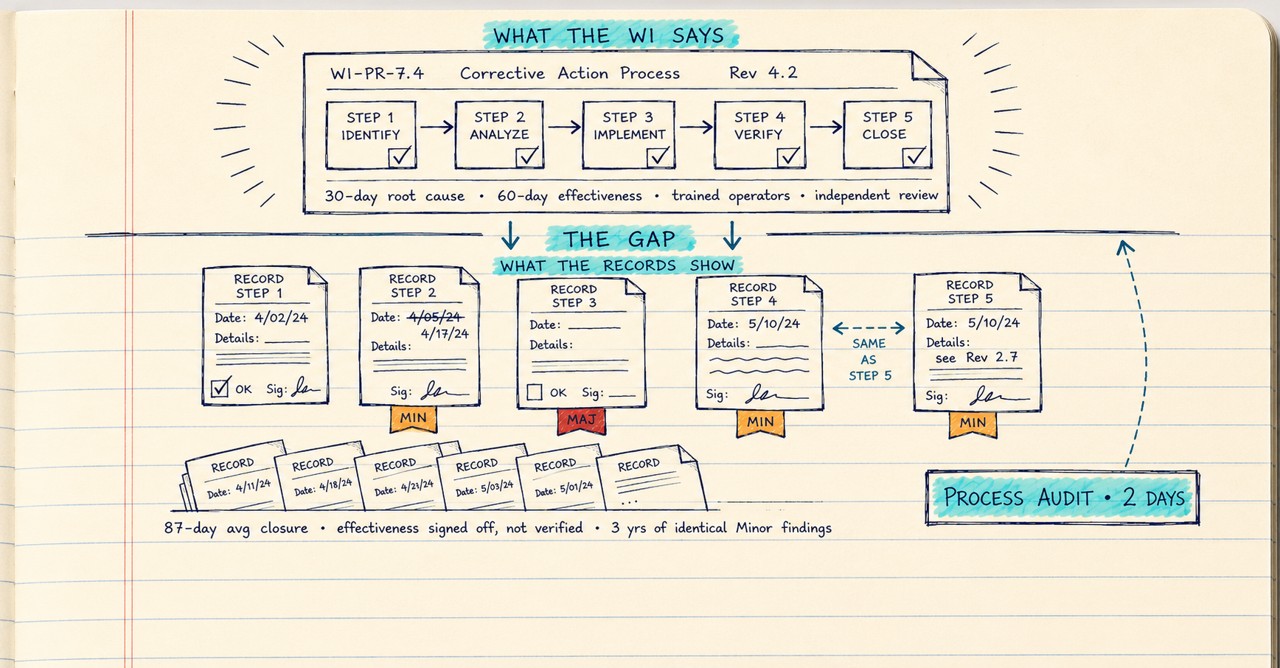 WHAT THE WI SAYS
WI-PR-7.4 Corrective Action Process Rev 4.2
STEP 1
IDENTIFY
STEP 2
ANALYZE
STEP 3
IMPLEMENT
STEP 4
VERIFY
STEP 5
CLOSE
30-day root cause • 60-day effectiveness • trained operators • independent review
THE GAP
WHAT THE RECORDS SHOW
RECORD
STEP 1
Date: 4/02/24
Details:
OK Sig:
RECORD
STEP 2
Date: 4/05/24
4/17/24
Details:
Sig:
MIN
RECORD
STEP 3
Date:
Details:
OK Sig:
MAJ
RECORD
STEP 4
Date: 5/10/24
Details:
Sig:
MIN
SAME
AS
STEP 5
RECORD
STEP 5
Date: 5/10/24
Details:
see Rev 2.7
Sig:
MIN
RECORD
Date: 4/11/24
RECORD
Date: 4/18/24
RECORD
Date: 4/21/24
RECORD
Date: 5/03/24
RECORD
Date: 5/01/24
RECORD
...
PROCESS AUDIT • 2 DAYS
87-day avg closure • effectiveness signed off, not verified • 3 yrs of identical Minor findings